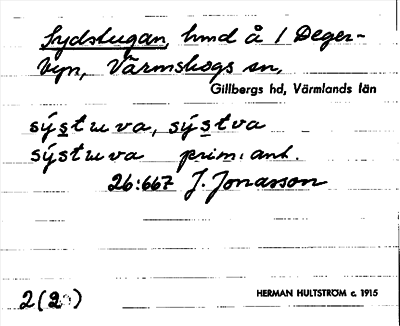 Sydstugan, hmd å 1 Deger-
byn, Värmskogs sn,
Gillbergs hd, Värmlands län
sýstuva, sýstva
sýstuva prim. ant.
26:667 J. Jonasson
2(2)
HERMAN HULTSTRÖM c. 1915